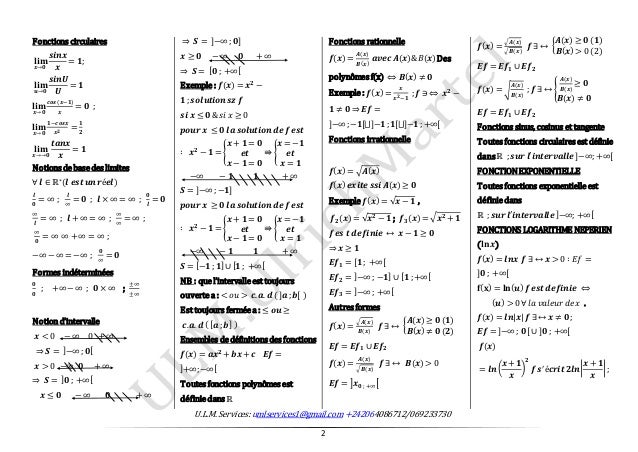 Fonctions circulaires
lim x→0 sinx/x = 1;
lim x→0 sinU/U = 1
lim x→0 cos(x−1)/x = 0 ;
lim x→0 1−cosx/x² = 1/2
lim x→0 tanx/x = 1
Notions de base des limites
∀ l ∈ ℝ*(l est un réel)
l/0 = ∞ ; l/∞ = 0 ; l × ∞ = ∞ ; 0/l = 0
∞/l = ∞ ; l + ∞ = ∞ ; ∞/∞ = ∞ ;
∞/0 = ∞ ∞ + ∞ = ∞ ;
−∞ − ∞ = −∞ ; 0/∞ = 0
Formes indéterminées
0/0 ; +∞ − ∞ ; 0 × ∞ ; ±∞/±∞
Notion d'intervalle
x < 0 −∞ 0 +∞
⇒ S = ]−∞ ; 0[
x > 0 −∞ 0 +∞
⇒ S = ]0 ; +∞[
x ≤ 0 −∞ 0 +∞
⇒ S = ]−∞ ; 0]
x ≥ 0 −∞ 0 +∞
⇒ S = [0 ; +∞[
Exemple : f(x) = x² −
1 ; solutionsz f
si x ≤ 0 & si x ≥ 0
pour x ≤ 0 la solution de f est
: x² − 1 = {x + 1 = 0 et x − 1 = 0 ⇒ {x = −1 et x = 1
−∞ − 1 1 +∞
S = ]−∞ ; −1]
pour x ≥ 0 la solution de f est
: x² − 1 = {x + 1 = 0 et x − 1 = 0 ⇒ {x = −1 et x = 1
−∞ − 1 1 +∞
S = [−1 ; 1] ∪ [1 ; +∞[
NB : que l'intervalle est toujours
ouverte a : < ou > c.a.d ( ]a ; b[ )
Est toujours fermée a : ≤ ou ≥
c.a.d ( [a ; b] )
Ensembles de définitions des fonctions
f(x) = ax² + bx + c Ef =
]+∞ ; −∞[
Toutes fonctions polynômes est
définie dans ℝ
Fonctions rationnelle
f(x) = A(x)/B(x) avec A(x) & B(x) Des
polynômes f(x) ⇔ B(x) ≠ 0
Exemple : f(x) = x/x²−1 ; f∃ ⇔ x² −
1 ≠ 0 ⇒ Ef =
]−∞ ; −1[∪]−1 ; 1[∪]−1 ; +∞[
Fonctions irrationnelle
f(x) = √A(x)
f(x) exite ssi A(x) ≥ 0
Exemple f(x) = √x − 1 ,
f₂(x) = √x² − 1 ; f₃(x) = √x² + 1
f est definie ↔ x − 1 ≥ 0
⇒ x ≥ 1
Ef₁ = [1 ; +∞[
Ef₂ = ]−∞ ; −1] ∪ [1 ; +∞[
Ef₃ = ]−∞ ; +∞[
Autres formes
f(x) = √A(x)/B(x) f∃ ↔ {A(x) ≥ 0 (1) B(x) ≠ 0 (2)
Ef = Ef₁ ∪ Ef₂
f(x) = A(x)/√B(x) f∃ ↔ B(x) > 0
Ef = ]x₀ ; +∞[
f(x) = √A(x)/√B(x) f∃ ↔ {A(x) ≥ 0 (1) B(x) > 0 (2)
Ef = Ef₁ ∪ Ef₂
f(x) = √A(x)/B(x) ; f∃ ↔ {A(x)/B(x) ≥ 0 B(x) ≠ 0
Ef = Ef₁ ∪ Ef₂
Fonctions sinus, cosinus et tangente
Toutes fonctions circulaires est définie
dans ℝ ; sur l'intervalle ]−∞; +∞[
FONCTION EXPONENTIELLE
Toutes fonctions exponentielle est
définie dans
ℝ ; sur l'intervalle ]−∞; +∞[
FONCTIONS LOGARITHME NEPERIEN
(lnx)
f(x) = lnx f∃ ↔ x > 0 : Ef =
]0 ; +∞[
f(x) = ln(u) f est definie ⇔
(u) > 0 ∀ la valeur de x ,
f(x) = ln|x| f∃ ↔ x ≠ 0 ;
Ef = ]−∞ ; 0[ ∪ ]0 ; +∞[
f(x)
= ln(x + 1/x)² f s'écrit 2ln|x + 1/x| ;
U.L.M. Services: umlservices1@gmail.com +242064086712/069233730
2